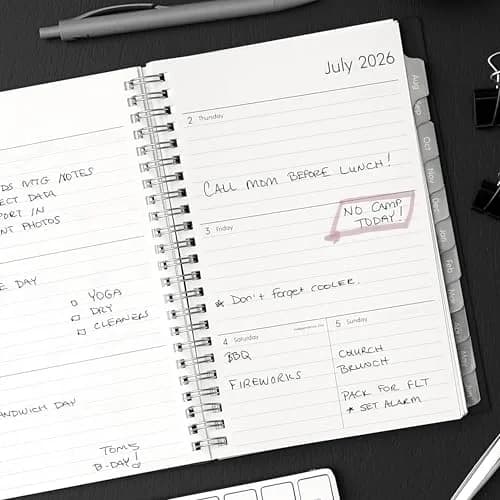 DS MTG NOTES
ECT DATA
PORT IN
NT PHOTOS
E DAY
YOGA
DRY
CLEANERS
ANDWICH DAY
TOM'S
B-DAY!
July 2026
2 Thursday
CALL MOM BEFORE LUNCH!
3 Friday
NO CAMP
TODAY!
* Don't forget COOLER.
4 Saturday Independence Day
BBQ
FIREWORKS
5 Sunday
CHURCH
BRUNCH
PACK FOR FLT
* SET ALARM
Aug
Sep
Oct
Nov
Dec
Jan
Feb